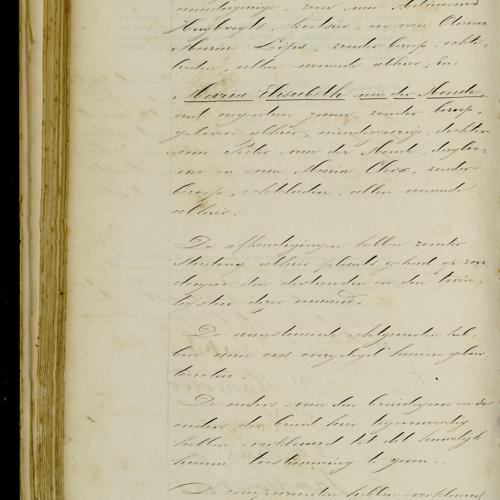 minderjarige, zoon van Adrianus
Huijbregts, koetsier, en van Anna
Maria Lips, zonder beroep, echte-
lieden, allen wonende alhier; en
Maria Elisabeth van der Mond
oud negentien jaren, zonder beroep,
geboren alhier, minderjarige, dochter
van Pieter van der Mond, dagloo-
ner en van Maria zonder
beroep, echtelieden, allen wonende
alhier.
De afkondigingen hebben zonder
stuiting alhier plaats gehad op zon-
dagen den dertienden en den twin-
tigsten dezer maand.
De aanstaande echtgenooten heb-
ben aan ons overgelegd hunne geboor-
teakten.
De ouders van den bruidegom en de
ouders der bruid hier tegenwoordig
hebben verklaard tot dit huwelijk
hunne toestemming te geven.
De comparanten hebben verklaard